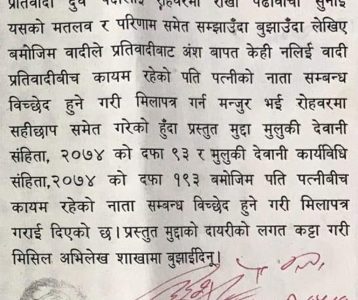 प्रतिवादी दुवै
यसको मतलव र परिणाम समेत सम्झाउँदा बुझाउँदा लेखिए
बमोजिम वादीले प्रतिवादीबाट अंश बापत केही नलिई वादी
प्रतिवादीबीच कायम रहेको पति पत्नीको नाता सम्बन्ध
विच्छेद हुने गरी मिलापत्र गर्न मन्जुर भई रोहवरमा
सहीछाप समेत गरेको हुँदा प्रस्तुत मुद्दा मुलुकी देवानी
संहिता, २०७४ को दफा ९३ र मुलुकी देवानी कार्यविधि
संहिता,२०७४ को दफा १९३ बमोजिम पति पत्नीबीच
कायम रहेको नाता सम्बन्ध विच्छेद हुने गरी मिलापत्र
गराई दिएको छ। प्रस्तुत मुद्दाको दायरीको लगत कट्टा गरी
मिसिल अभिलेख शाखामा बुझाईदिनू।